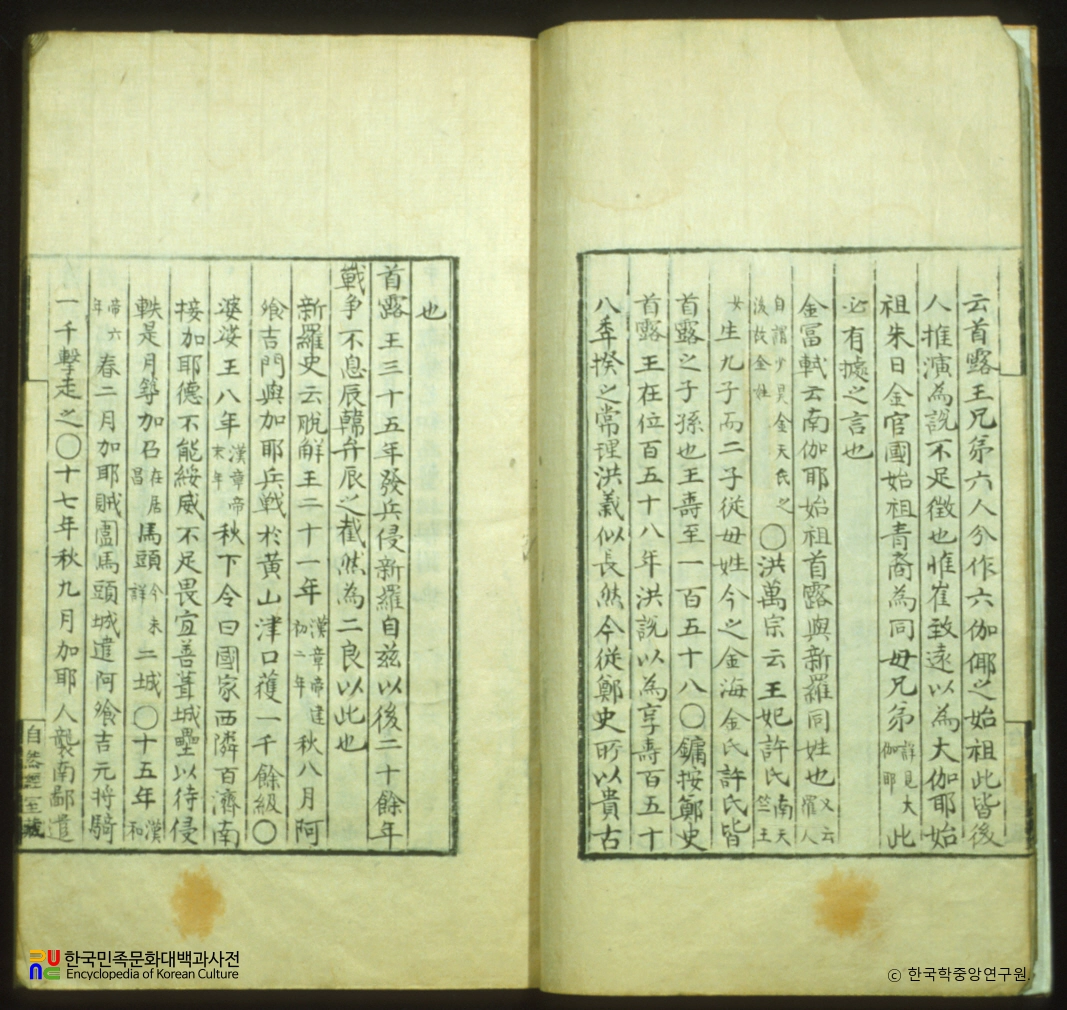 云首露王兄弟六人分作六伽倻之始祖此皆後
人推演為說不足徵也惟崔致遠以為大伽耶始
祖朱日金官國始祖青裔為同母兄弟詳見大伽耶此
必有據之言也
金富軾云南伽耶始祖首露與新羅同姓也又云羅人
自謂少昊金天氏之後故金姓〇洪萬宗云王妃許氏南天竺王
女生九子而二子從母姓今之金海金氏許氏皆
首露之子孫也王壽至一百五十八〇鏞按鄭史
首露王在位百五十八年洪說以為享壽百五十
八秊揆之常理洪義似長然今從鄭史所以貴古
也
首露王三十五年發兵侵新羅自玆以後二十餘年
戰爭不息辰韓弁辰之截然為二良以此也
新羅史云脫解王二十一年漢章帝建初二年秋八月阿
飱吉門與加耶兵戰於黃山津口獲一千餘級〇
婆娑王八年漢章帝末年秋下令曰國家西隣百濟南
接加耶德不能綏威不足畏宜善葺城壘以待侵
軼是月築加召在居昌馬頭今未詳二城〇十五年漢和
帝六年春二月加耶賊圍馬頭城遣阿飱吉元將騎
一千擊走之〇十七年秋九月加耶人襲南鄙遣
自然經室藏
한국민족문화대백과사전
Encyclopedia of Korean Culture
© 한국학중앙연구원.